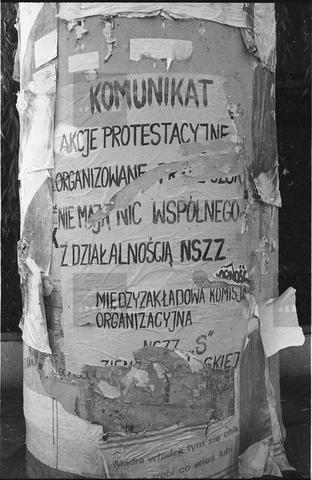 KOMUNIKAT
AKCJE PROTESTACYJNE
ORGANIZOWANE
NIE MAJĄ NIC WSPÓLNEGO
Z DZIAŁALNOŚCIĄ NSZZ
MIĘDZYZAKŁADOWA KOMISJA
ORGANIZACYJNA
NSZZ „S"
Mądra władza tym się
zrobi co wieś lubi